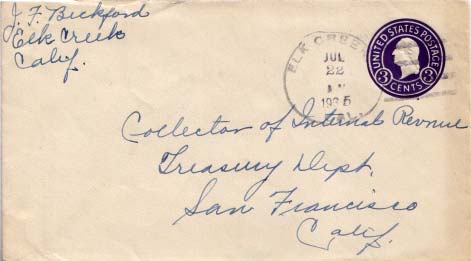 J. F. Beckford
Elk Creek
Calif.
ELK CREEK
JUL
22
AM
1935
CALIF.
UNITED STATES POSTAGE
3 CENTS 3
Collector of Internal Revnue
Treasury Dept.
San Francisco
Calif.